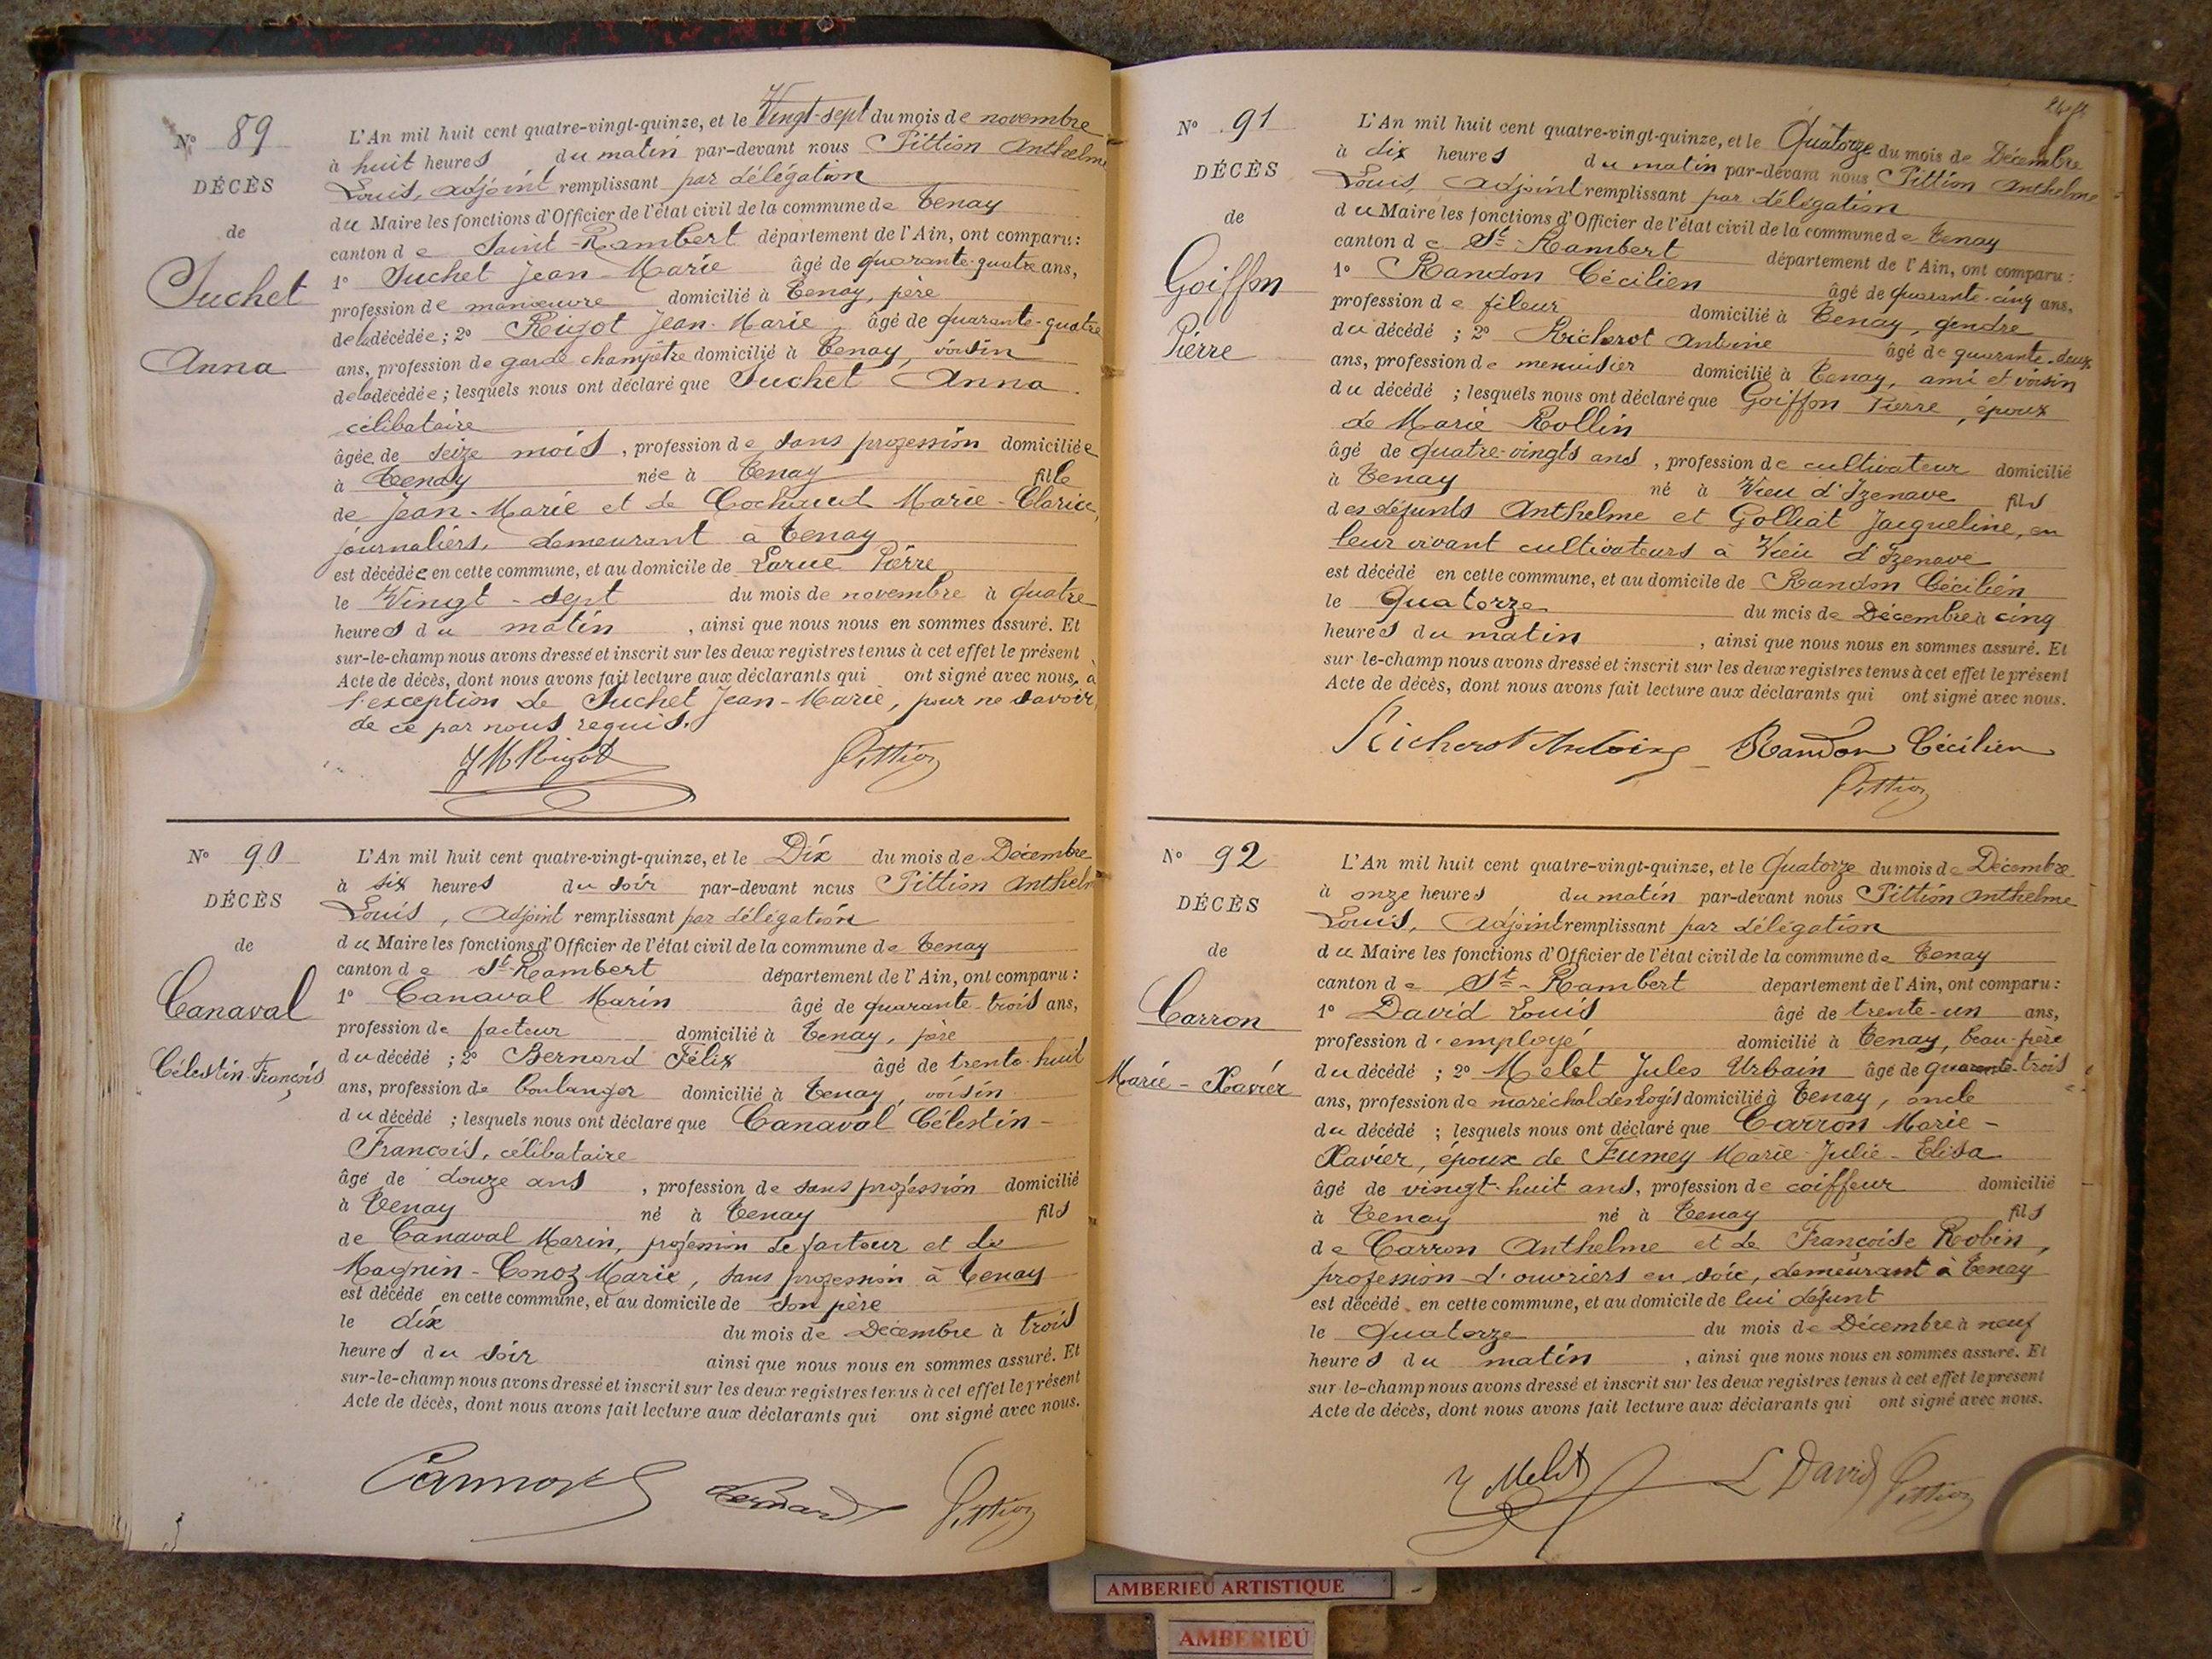 Nº 89
DÉCÈS
de
Suchet
Anna
L'An mil huit cent quatre-vingt-quinze, et le Vingt-sept du mois de novembre
à huit heures du matin par-devant nous Pittion Anthelme
Louis, adjoint remplissant par délégation
du Maire les fonctions d'Officier de l'état civil de la commune de Tenay
canton de Saint-Rambert département de l'Ain, ont comparu :
1º Suchet Jean-Marie âgé de quarante-quatre ans,
profession de manœuvre domicilié à Tenay, père
de la décédée ; 2º Rigot Jean-Marie âgé de quarante-quatre
ans, profession de garde champêtre domicilié à Tenay, voisin
de la décédée ; lesquels nous ont déclaré que Suchet Anna
célibataire
âgée de seize mois, profession de sans profession domiciliée
à Tenay née à Tenay fille
de Jean-Marie et de Cochaud Marie-Clarice,
journaliers, demeurant à Tenay
est décédée en cette commune, et au domicile de Larue Pierre
le Vingt-sept du mois de novembre à quatre
heures du matin, ainsi que nous nous en sommes assuré. Et
sur-le-champ nous avons dressé et inscrit sur les deux registres tenus à cet effet le présent
Acte de décès, dont nous avons fait lecture aux déclarants qui ont signé avec nous, à
l'exception de Suchet Jean-Marie, pour ne savoir,
de ce par nous requis.
JM Rigot Pittion
Nº 90
DÉCÈS
de
Canaval
Célestin-François
L'An mil huit cent quatre-vingt-quinze, et le Dix du mois de Décembre
à six heures du soir par-devant nous Pittion Anthelm
Louis, Adjoint remplissant par délégation
du Maire les fonctions d'Officier de l'état civil de la commune de Tenay
canton de St-Rambert département de l'Ain, ont comparu :
1º Canaval Marin âgé de quarante-trois ans,
profession de facteur domicilié à Tenay, père
du décédé ; 2º Bernard Félix âgé de trente-huit
ans, profession de boulanger domicilié à Tenay, voisin
du décédé ; lesquels nous ont déclaré que Canaval Célestin-
François, célibataire
âgé de douze ans, profession de sans profession domicilié
à Tenay né à Tenay fils
de Canaval Marin, profession de facteur et de
Magnin-Conoz Marie, sans profession à Tenay
est décédé en cette commune, et au domicile de son père
le dix du mois de Décembre à trois
heures du soir ainsi que nous nous en sommes assuré. Et
sur-le-champ nous avons dressé et inscrit sur les deux registres tenus à cet effet le présent
Acte de décès, dont nous avons fait lecture aux déclarants qui ont signé avec nous.
Bernard Pittion
Nº 91
DÉCÈS
de
Goiffon
Pierre
L'An mil huit cent quatre-vingt-quinze, et le Quatorze du mois de Décembre
à dix heures du matin par-devant nous Pittion Anthelme
Louis, adjoint remplissant par délégation
du Maire les fonctions d'Officier de l'état civil de la commune de Tenay
canton de St-Rambert département de l'Ain, ont comparu :
1º Randon Cécilien âgé de quarante-cinq ans,
profession de fileur domicilié à Tenay, gendre
du décédé ; 2º Richerot Antoine âgé de quarante-deux
ans, profession de menuisier domicilié à Tenay, ami et voisin
du décédé ; lesquels nous ont déclaré que Goiffon Pierre, époux
de Marie Rollin
âgé de quatre-vingts ans, profession de cultivateur domicilié
à Tenay né à Vieu d'Izenave fils
des défunts Anthelme et Golliat Jacqueline, en
leur vivant cultivateurs à Vieu d'Izenave
est décédé en cette commune, et au domicile de Randon Cécilien
le Quatorze du mois de Décembre à cinq
heures du matin, ainsi que nous nous en sommes assuré. Et
sur-le-champ nous avons dressé et inscrit sur les deux registres tenus à cet effet le présent
Acte de décès, dont nous avons fait lecture aux déclarants qui ont signé avec nous.
Richerot Antoine Randon Cécilien
Pittion
Nº 92
DÉCÈS
de
Carron
Marie-Xavier
L'An mil huit cent quatre-vingt-quinze, et le Quatorze du mois de Décembre
à onze heures du matin par-devant nous Pittion Anthelme
Louis, Adjoint remplissant par délégation
du Maire les fonctions d'Officier de l'état civil de la commune de Tenay
canton de St-Rambert département de l'Ain, ont comparu :
1º David Louis âgé de trente-un ans,
profession d'employé domicilié à Tenay, beau-père
du décédé ; 2º Melet Jules Urbain âgé de quarante-trois
ans, profession de maréchal des logis domicilié à Tenay, oncle
du décédé ; lesquels nous ont déclaré que Carron Marie-
Xavier, époux de Fumey Marie-Julie-Elisa
âgé de vingt-huit ans, profession de coiffeur domicilié
à Tenay né à Tenay fils
de Carron Anthelme et de Françoise Robin,
profession d'ouvriers en soie, demeurant à Tenay
est décédé en cette commune, et au domicile de lui défunt
le Quatorze du mois de Décembre à neuf
heures du matin, ainsi que nous nous en sommes assuré. Et
sur-le-champ nous avons dressé et inscrit sur les deux registres tenus à cet effet le présent
Acte de décès, dont nous avons fait lecture aux déclarants qui ont signé avec nous.
J Melet L David Pittion
AMBERIEU ARTISTIQUE
AMBERIEU